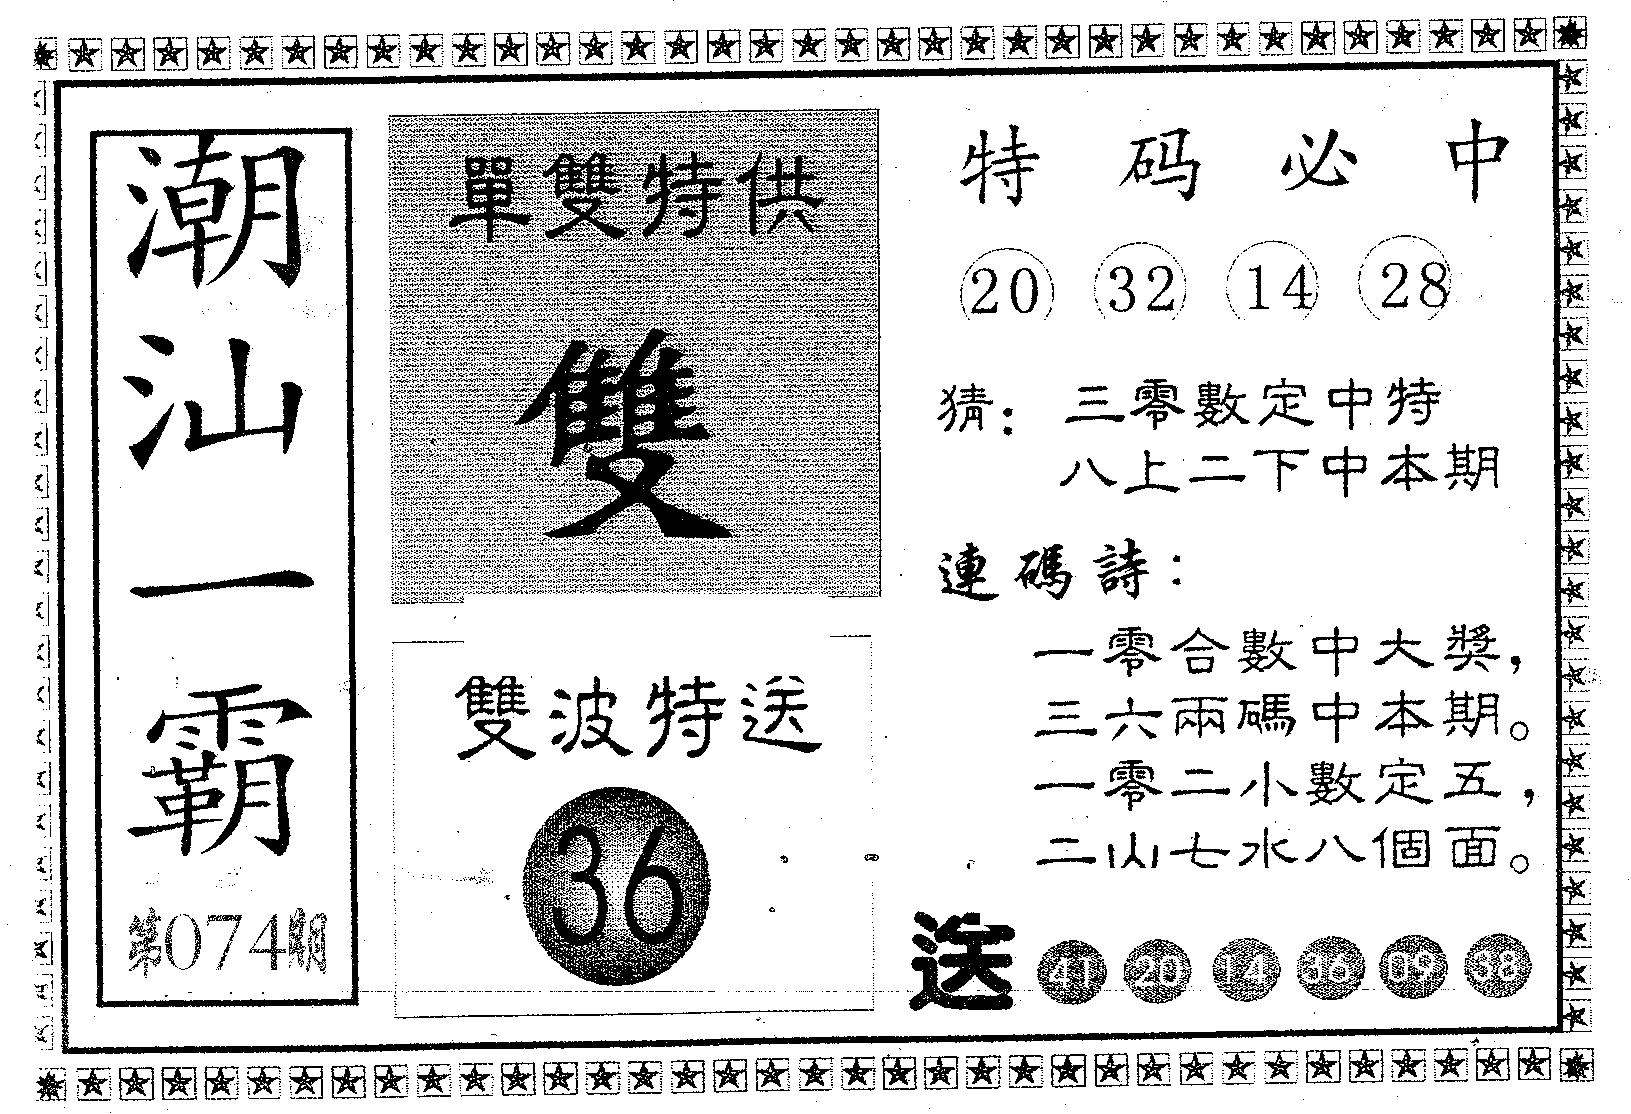 潮汕一霸
第074期
單雙特供
雙
雙波特送
36
特码必中
20 32 14 28
猜：三零數定中特
八上二下中本期
連碼詩：
一零合數中大獎，
三六兩碼中本期。
一零二小數定五，
二山七水八個面。
送 41 20 14 36 09 38